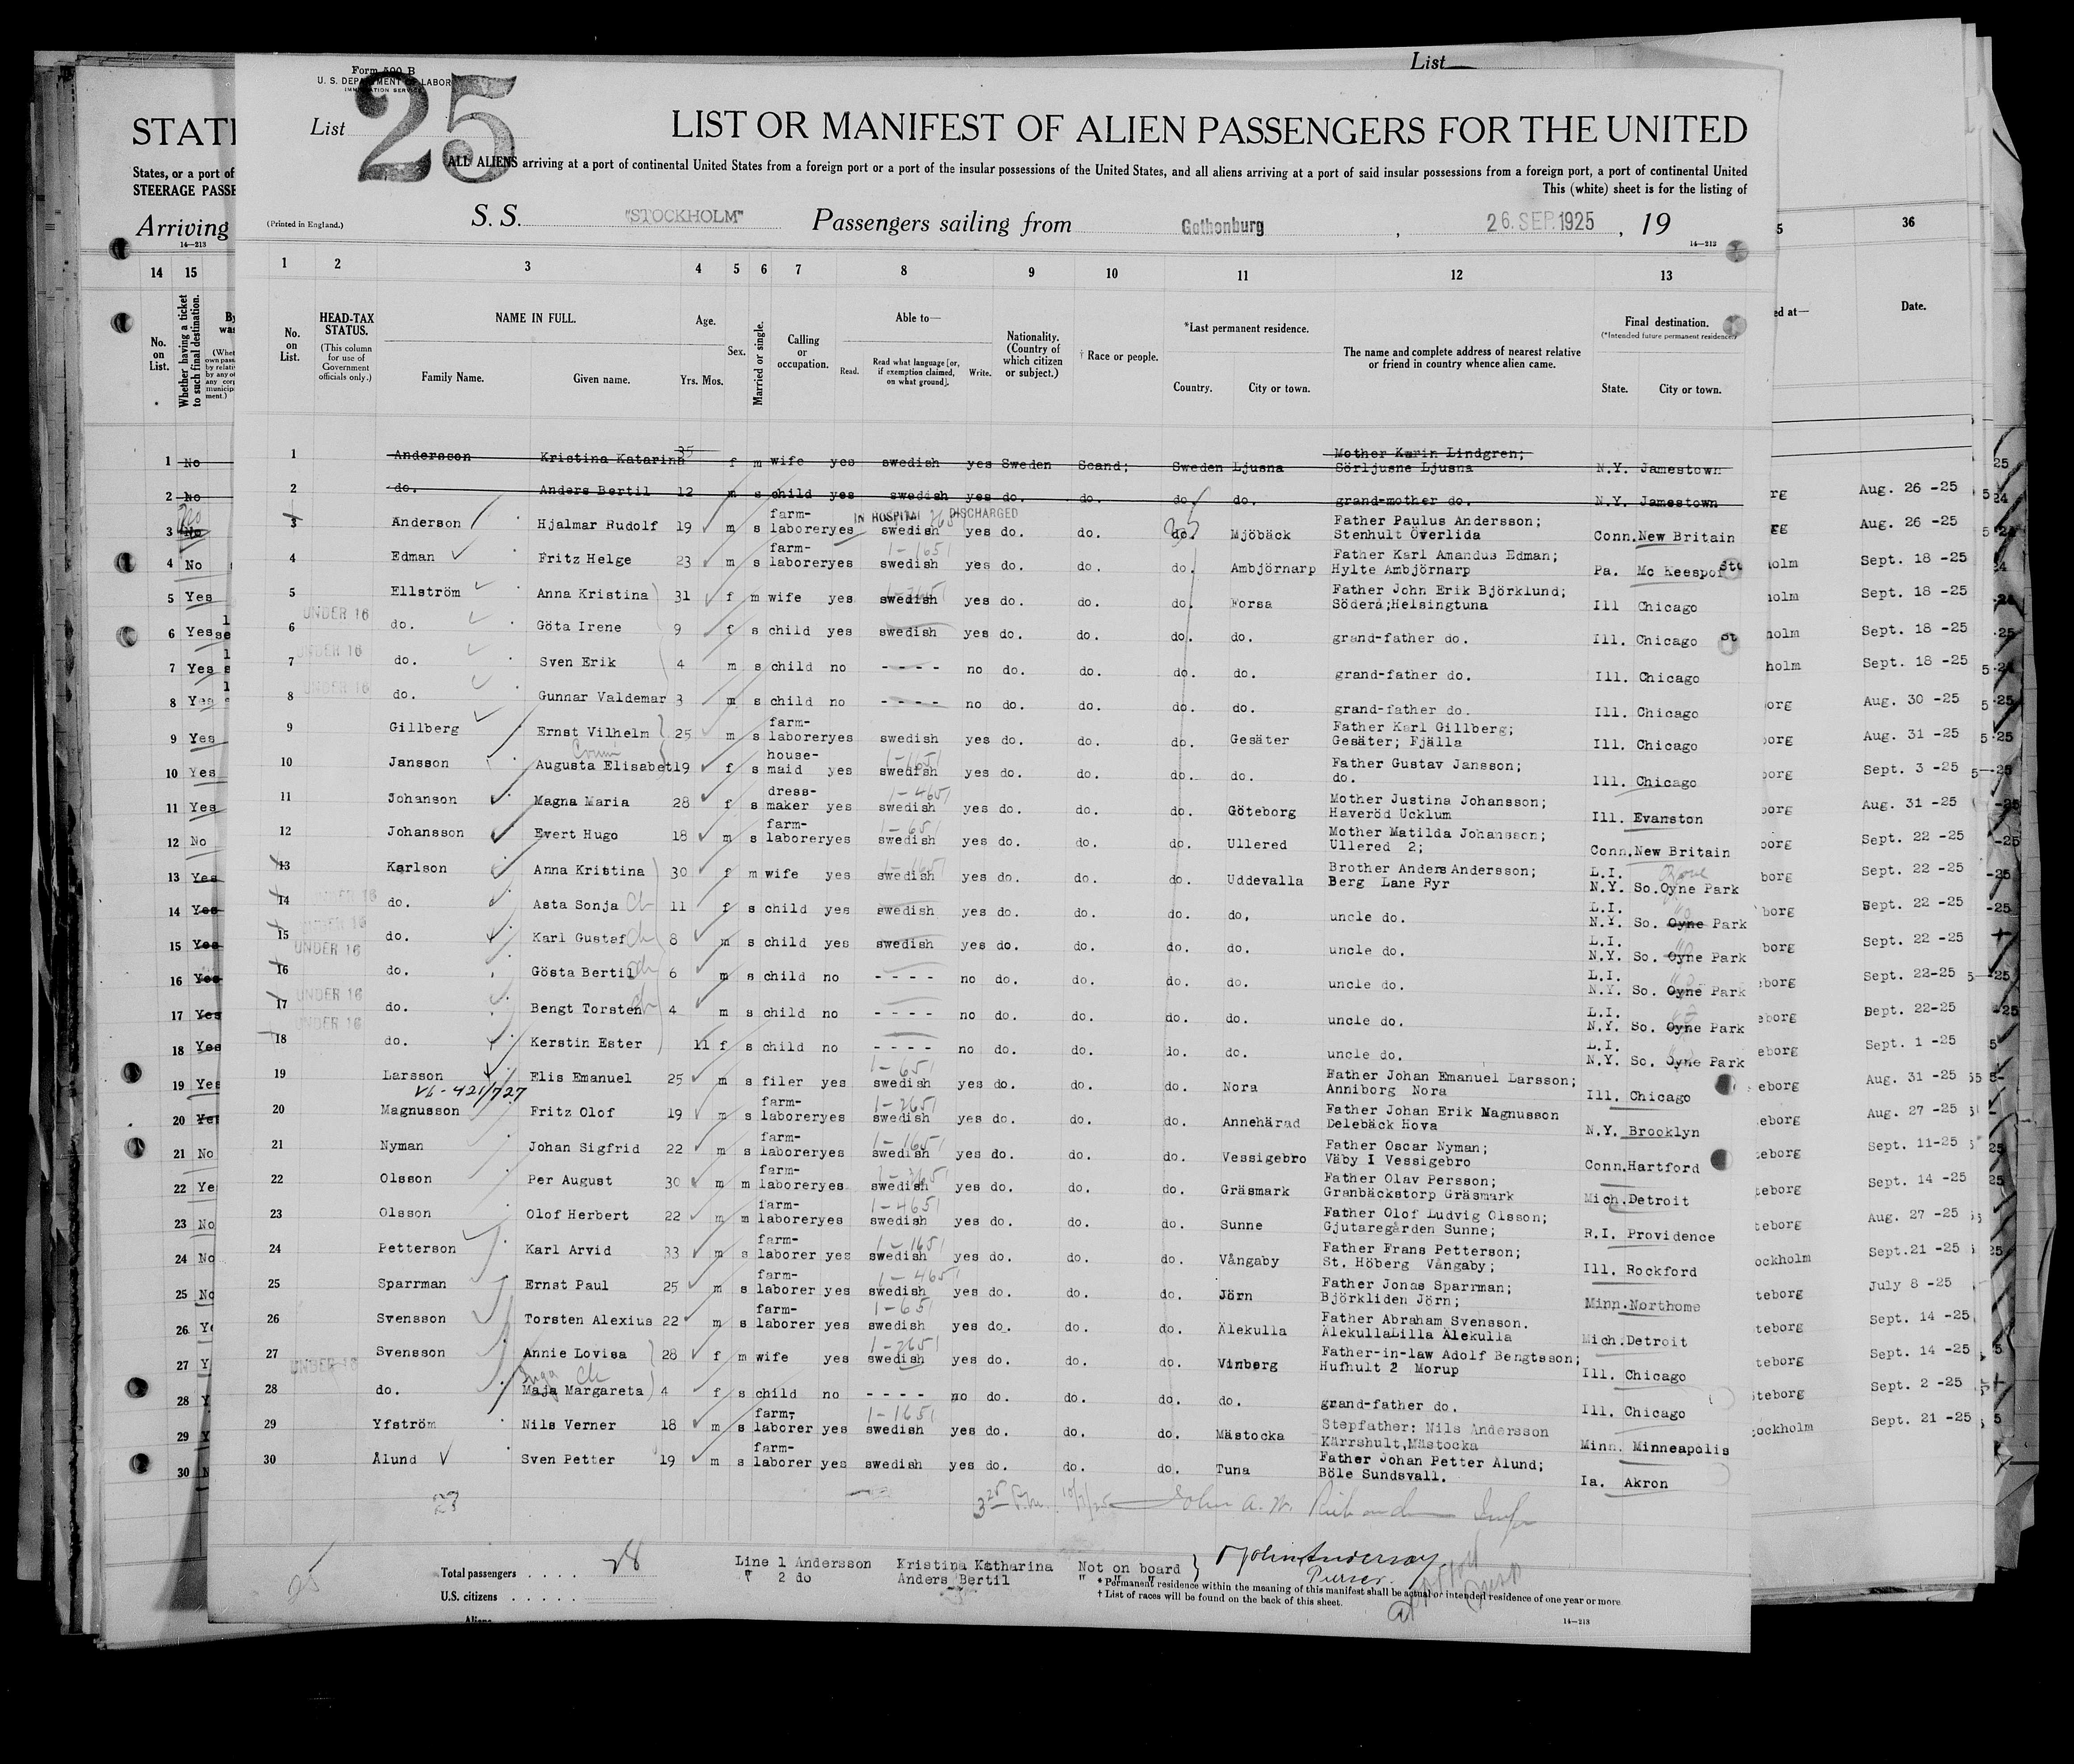 List
Form 500 B
U. S. DEPARTMENT OF LABOR
IMMIGRATION SERVICE
List 25
STATE
LIST OR MANIFEST OF ALIEN PASSENGERS FOR THE UNITED
ALL ALIENS arriving at a port of continental United States from a foreign port or a port of the insular possessions of the United States, and all aliens arriving at a port of said insular possessions from a foreign port, a port of continental United
This (white) sheet is for the listing of
States, or a port of
STEERAGE PASSE
Arriving
14—213
(Printed in England.)
S. S. "STOCKHOLM" Passengers sailing from Gothenburg, 26. SEP. 1925, 19
14—213
14 15
1 2 3 4 5 6 7 8 9 10 11 12 13
36
No. on List.
Whether having a ticket to such final destination.
No. on List.
HEAD-TAX STATUS.
(This column for use of Government officials only.)
NAME IN FULL.
Family Name. Given name.
Age.
Yrs. Mos.
Sex.
Married or single.
Calling or occupation.
Able to—
Read. Read what language [or, if exemption claimed, on what ground]. Write.
Nationality. (Country of which citizen or subject.)
† Race or people.
*Last permanent residence.
Country. City or town.
The name and complete address of nearest relative or friend in country whence alien came.
Final destination.
(*Intended future permanent residence.)
State. City or town.
ed at—
Date.
1 No 1 Andersson Kristina Katarina 35 f m wife yes swedish yes Sweden Scand; Sweden Ljusna Mother Karin Lindgren; Sörljusne Ljusna N.Y. Jamestown
2 No 2 do. Anders Bertil 12 m s child yes swedish yes do. do. do. do. grand-mother do. N.Y. Jamestown rg Aug. 26 -25
IN HOSPITAL DISCHARGED
3 No 3 Anderson Hjalmar Rudolf 19 m s farm-laborer yes swedish yes do. do. do. Mjöbäck Father Paulus Andersson; Stenhult Överlida Conn. New Britain rg Aug. 26 -25
4 No 4 Edman Fritz Helge 23 m s farm-laborer yes swedish yes do. do. do. Ambjörnarp Father Karl Amandus Edman; Hylte Ambjörnarp Pa. Mc Keespo holm Sept. 18 -25
5 Yes 5 Ellström Anna Kristina 31 f m wife yes swedish yes do. do. do. Forsa Father John Erik Björklund; Söderå;Helsingtuna Ill Chicago holm Sept. 18 -25
UNDER 16
6 Yes 6 do. Göta Irene 9 f s child yes swedish yes do. do. do. do. grand-father do. Ill. Chicago holm Sept. 18 -25
UNDER 16
7 Yes 7 do. Sven Erik 4 m s child no - - - - no do. do. do. do. grand-father do. Ill. Chicago holm Sept. 18 -25
UNDER 16
8 Yes 8 do. Gunnar Valdemar 3 m s child no - - - - no do. do. do. do. grand-father do. Ill. Chicago org Aug. 30 -25
9 Yes 9 Gillberg Ernst Vilhelm 25 m s farm-laborer yes swedish yes do. do. do. Gesäter Father Karl Gillberg; Gesäter; Fjälla Ill. Chicago borg Aug. 31 -25
10 Yes 10 Jansson Augusta Elisabet 19 f s house-maid yes swedish yes do. do. do. do. Father Gustav Jansson; do. Ill. Chicago borg Sept. 3 -25
11 Yes 11 Johanson Magna Maria 28 f s dress-maker yes swedish yes do. do. do. Göteborg Mother Justina Johansson; Haveröd Ucklum Ill. Evanston borg Aug. 31 -25
12 No 12 Johansson Evert Hugo 18 m s farm-laborer yes swedish yes do. do. do. Ullered Mother Matilda Johansson; Ullered 2; Conn. New Britain borg Sept. 22 -25
13 Yes 13 Karlson Anna Kristina 30 f m wife yes swedish yes do. do. do. Uddevalla Brother Anders Andersson; Berg Lane Ryr L.I. N.Y. So.Oyne Park borg Sept. 22 -25
UNDER 16
14 Yes 14 do. Asta Sonja Ch 11 f s child yes swedish yes do. do. do. do, uncle do. L.I. N.Y. So. Oyne Park borg Sept. 22 -25
UNDER 16
15 Yes 15 do. Karl Gustaf Ch 8 m s child yes swedish yes do. do. do. do. uncle do. L.I. N.Y. So. Oyne Park borg Sept. 22 -25
UNDER 16
16 Yes 16 do. Gösta Bertil Ch 6 m s child no - - - - no do. do. do. do. uncle do. L.I. N.Y. So. Oyne Park borg Sept. 22-25
UNDER 16
17 Yes 17 do. Bengt Torsten Ch 4 m s child no - - - - no do. do. do. do. uncle do. L.I. N.Y. So. Oyne Park eborg Sept. 22-25
UNDER 16
18 Yes 18 do. Kerstin Ester 11 f s child no - - - - no do. do. do. do. uncle do. L.I. N.Y. So. Oyne Park eborg Sept. 1 -25
19 Yes 19 Larsson Elis Emanuel 25 m s filer yes swedish yes do. do. do. Nora Father Johan Emanuel Larsson; Anniborg Nora Ill. Chicago eborg Aug. 31 -25
20 Yes 20 Magnusson Fritz Olof 19 m s farm-laborer yes swedish yes do. do. do. Annehärad Father Johan Erik Magnusson Delebäck Hova N.Y. Brooklyn eborg Aug. 27 -25
21 No 21 Nyman Johan Sigfrid 22 m s farm-laborer yes swedish yes do. do. do. Vessigebro Father Oscar Nyman; Väby I Vessigebro Conn. Hartford teborg Sept. 11-25
22 Ye 22 Olsson Per August 30 m m farm-laborer yes swedish yes do. do. do. Gräsmark Father Olav Persson; Granbäckstorp Gräsmark Mich. Detroit teborg Sept. 14 -25
23 No 23 Olsson Olof Herbert 22 m m farm-laborer yes swedish yes do. do. do. Sunne Father Olof Ludvig Olsson; Gjutaregården Sunne; R.I. Providence teborg Aug. 27 -25
24 No 24 Petterson Karl Arvid 33 m s farm-laborer yes swedish yes do. do. do. Vångaby Father Frans Petterson; St. Höberg Vångaby; Ill. Rockford ockholm Sept.21 -25
25 No 25 Sparrman Ernst Paul 25 m s farm-laborer yes swedish yes do. do. do. Jörn Father Jonas Sparrman; Björkliden Jörn; Minn. Northome teborg July 8 -25
26 Ye 26 Svensson Torsten Alexius 22 m s farm-laborer yes swedish yes do. do. do. Älekulla Father Abraham Svensson. ÄlekullaLilla Älekulla Mich. Detroit teborg Sept. 14 -25
27 Y 27 Svensson Annie Lovisa 28 f m wife yes swedish yes do. do. do. Vinberg Father-in-law Adolf Bengtsson; Hufhult 2 Morup Ill. Chicago teborg Sept. 14 -25
UNDER 16
Inga Ch
28 Y 28 do. Maja Margareta 4 f s child no - - - - no do. do. do. do. grand-father do. Ill. Chicago öteborg Sept. 2 -25
29 Y 29 Yfström Nils Verner 18 m s farm-laborer yes swedish yes do. do. do. Mästocka Stepfather: Nils Andersson Kärrshult,Mästocka Minn. Minneapolis tockholm Sept. 21 -25
30 N 30 Ålund Sven Petter 19 m s farm-laborer yes swedish yes do. do. do. Tuna Father Johan Petter Ålund; Böle Sundsvall. Ia. Akron
John A. W.
Total passengers . . . . 28
U.S. citizens . . . . .
Aliens
Line 1 Andersson Kristina Katharina Not on board
" 2 do Anders Bertil " " "
John Anderson
Purser.
* Permanent residence within the meaning of this manifest shall be actual or intended residence of one year or more.
† List of races will be found on the back of this sheet.
14—213